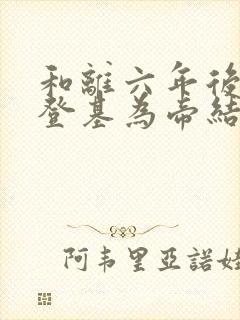 和離六年後
登基為帝結
阿韦里亞諾娃